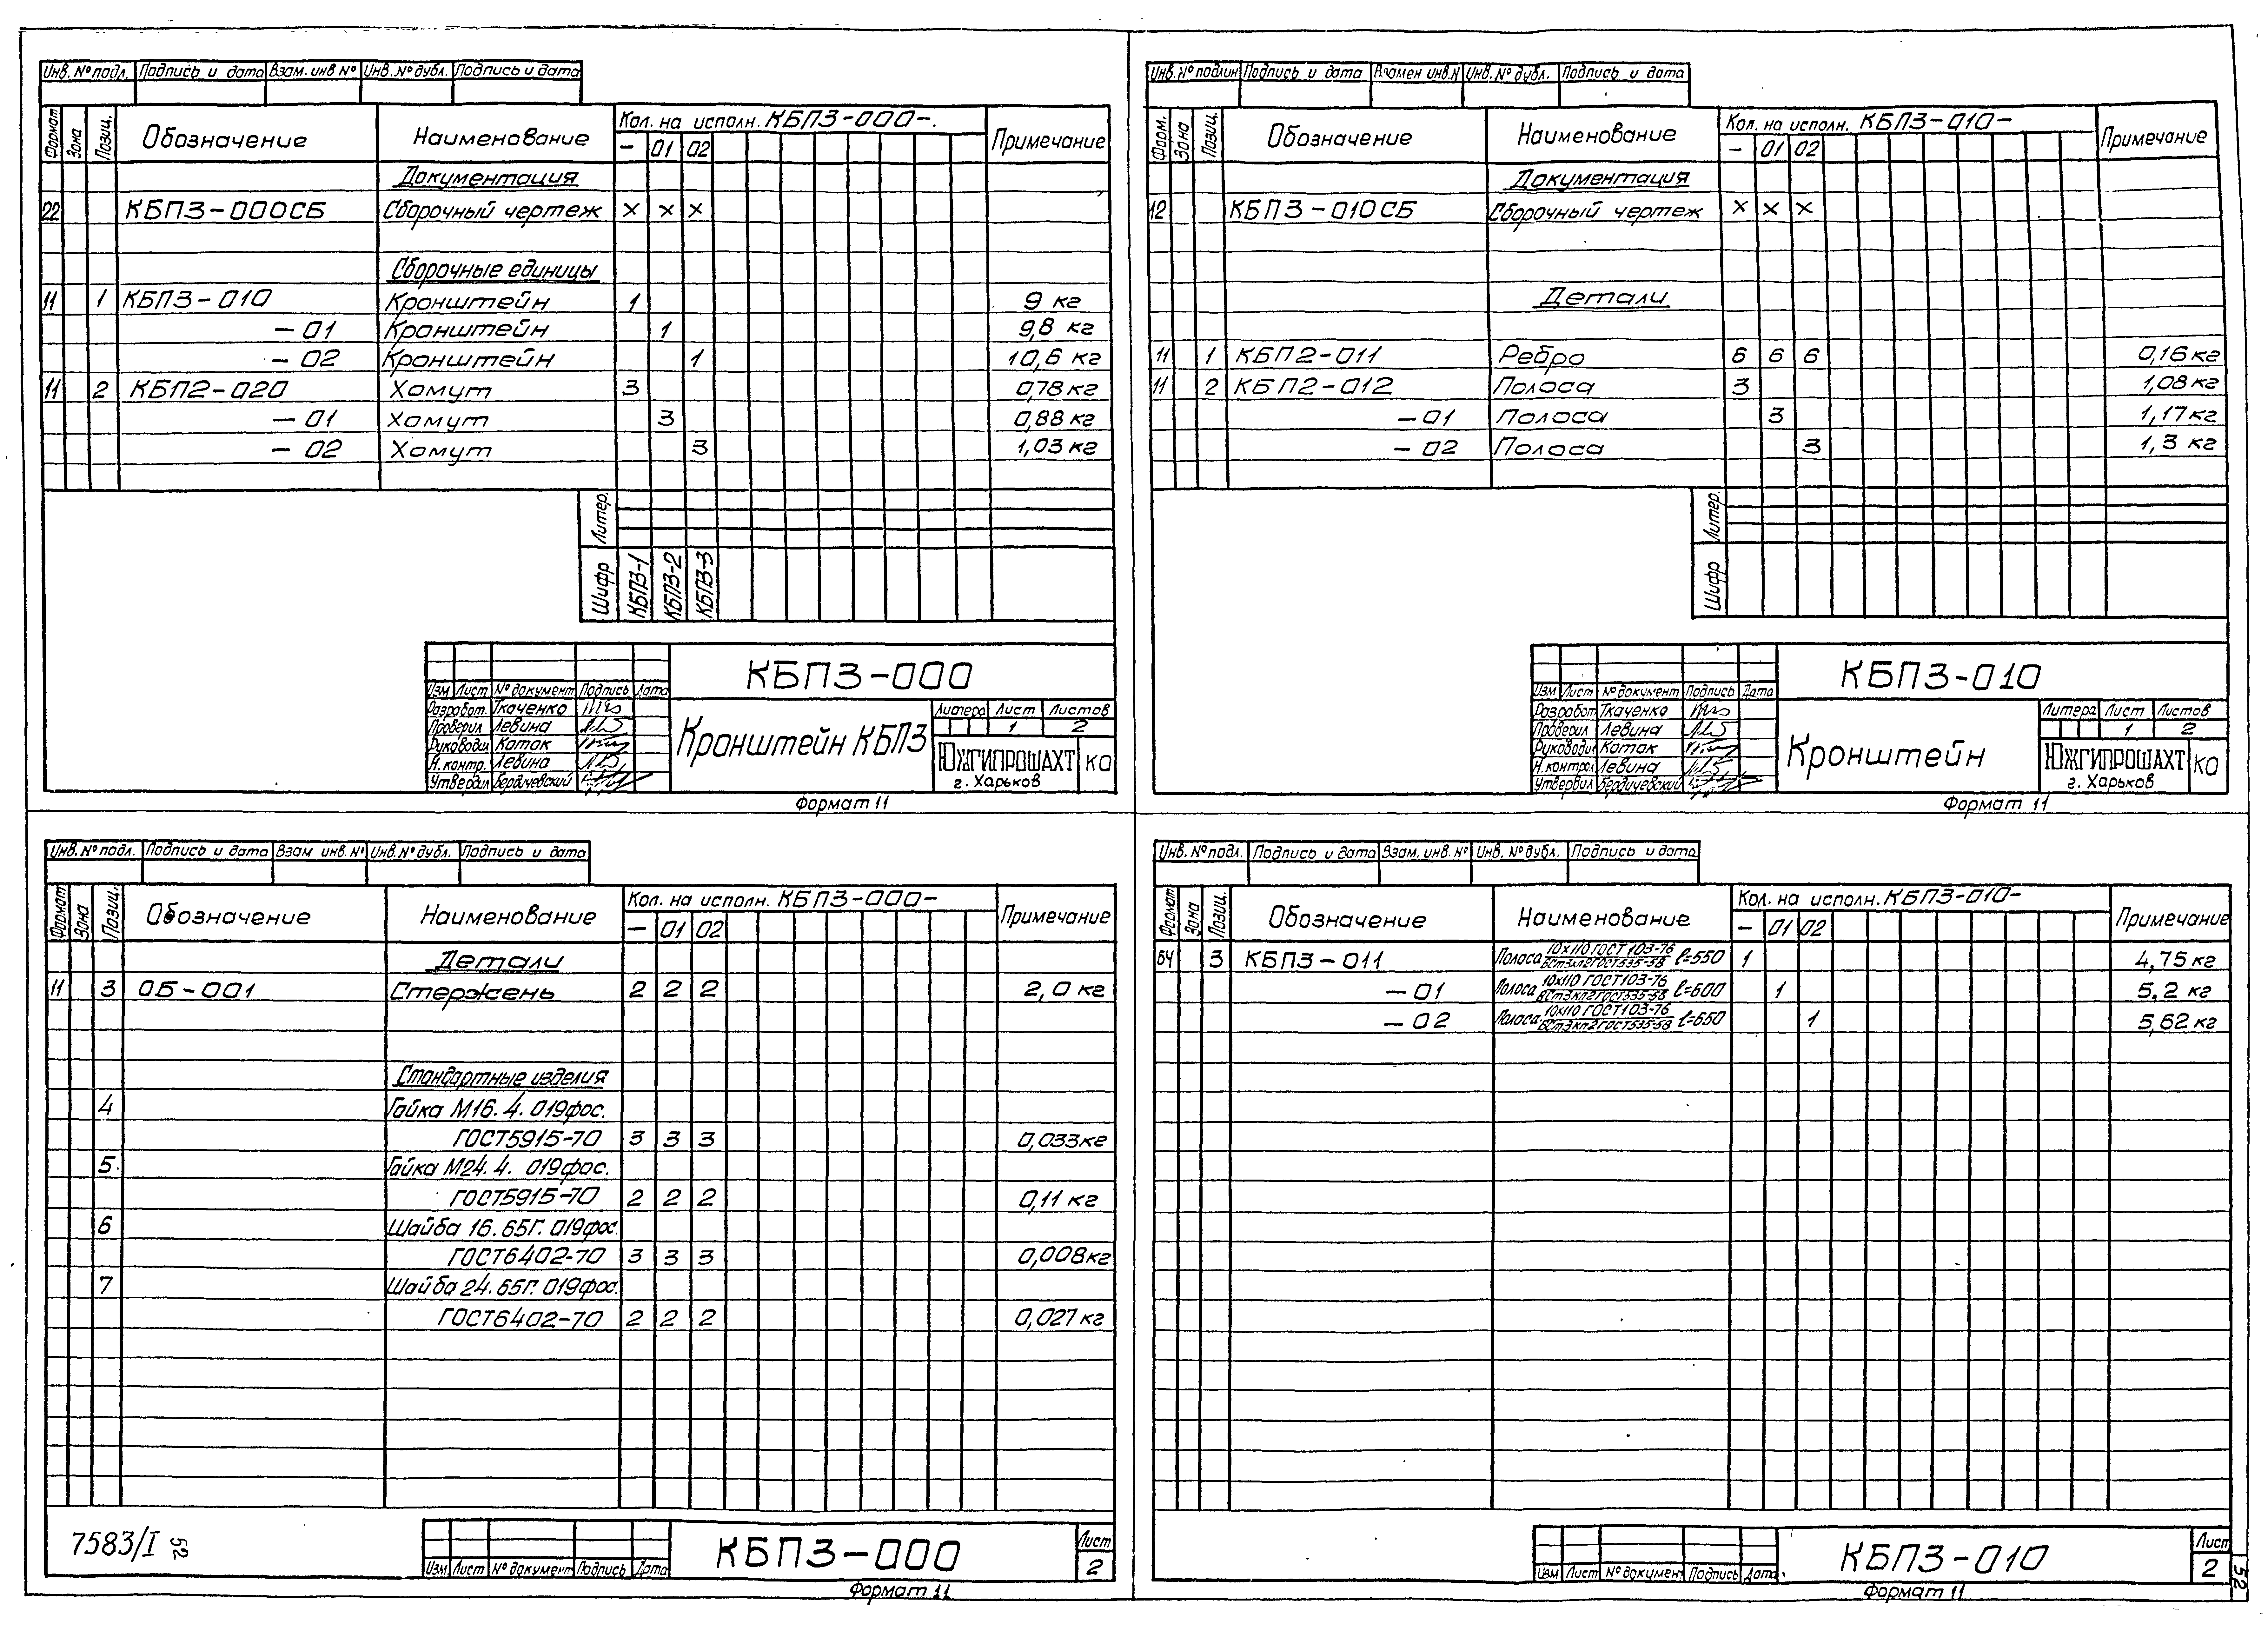 Инв. № подл. Подпись и дата Взам. инв № Инв. № дубл. Подпись и дата
Формат Зона Позиц. Обозначение Наименование Кол. на исполн. КБП3-000-. Примечание
— 01 02
Документация
22 КБП3-000СБ Сборочный чертеж × × ×
Сборочные единицы
11 1 КБП3-010 Кронштейн 1 9 кг
-01 Кронштейн 1 9,8 кг
-02 Кронштейн 1 10,6 кг
11 2 КБП2-020 Хомут 3 0,78 кг
-01 Хомут 3 0,88 кг
-02 Хомут 3 1,03 кг
Литер.
Шифр КБП3-1 КБП3-2 КБП3-3
КБП3-000
Изм Лист № документ Подпись Дата
Разработ. Ткаченко
Проверил Левина
Руководил Коток
Н. контр. Левина
Утвердил Бердичевский
Кронштейн КБП3
Литера Лист Листов
1 2
ЮЖГИПРОШАХТ КО
г. Харьков
Формат 11
Инв. № подлин Подпись и дата Взамен инв. № Инв. № дубл. Подпись и дата
Форм. Зона Позиц. Обозначение Наименование Кол. на исполн. КБП3-010- Примечание
— 01 02
Документация
12 КБП3-010СБ Сборочный чертеж × × ×
Детали
11 1 КБП2-011 Ребро 6 6 6 0,16 кг
11 2 КБП2-012 Полоса 3 1,08 кг
-01 Полоса 3 1,17 кг
-02 Полоса 3 1,3 кг
Литер.
Шифр
КБП3-010
Изм Лист № документ Подпись Дата
Разработ Ткаченко
Проверил Левина
Руководил Коток
Н. контрол Левина
Утвердил Бердичевский
Кронштейн
Литера Лист Листов
1 2
ЮЖГИПРОШАХТ КО
г. Харьков
Формат 11
Инв. № подл. Подпись и дата Взам. инв. № Инв. № дубл. Подпись и дата
Формат Зона Позиц. Обозначение Наименование Кол. на исполн. КБП3-000- Примечание
— 01 02
Детали
11 3 ОБ-001 Стержень 2 2 2 2,0 кг
Стандартные изделия
4 Гайка М16. 4. 019фос.
ГОСТ5915-70 3 3 3 0,033кг
5. Гайка М24. 4. 019фос.
ГОСТ5915-70 2 2 2 0,11 кг
6 Шайба 16. 65Г. 019фос.
ГОСТ6402-70 3 3 3 0,008кг
7 Шайба 24. 65Г. 019фос.
ГОСТ6402-70 2 2 2 0,027 кг
7583/I 52
Изм Лист № документ Подпись Дата
КБП3-000
Лист
2
Формат 11
Инв. № подл. Подпись и дата Взам. инв. № Инв. № дубл. Подпись и дата
Формат Зона Позиц. Обозначение Наименование Кол. на исполн. КБП3-010- Примечание
— 01 02
БЧ 3 КБП3-011 Полоса 10х110 ГОСТ 103-76 / ВСт3кп2 ГОСТ535-58 l=550 1 4,75 кг
-01 Полоса 10х110 ГОСТ103-76 / ВСт3кп2 ГОСТ535-58 l=600 1 5,2 кг
-02 Полоса 10х110 ГОСТ103-76 / ВСт3кп2 ГОСТ535-58 l=650 1 5,62 кг
Изм Лист № документ Подпись Дата
КБП3-010
Лист
2
Формат 11
52